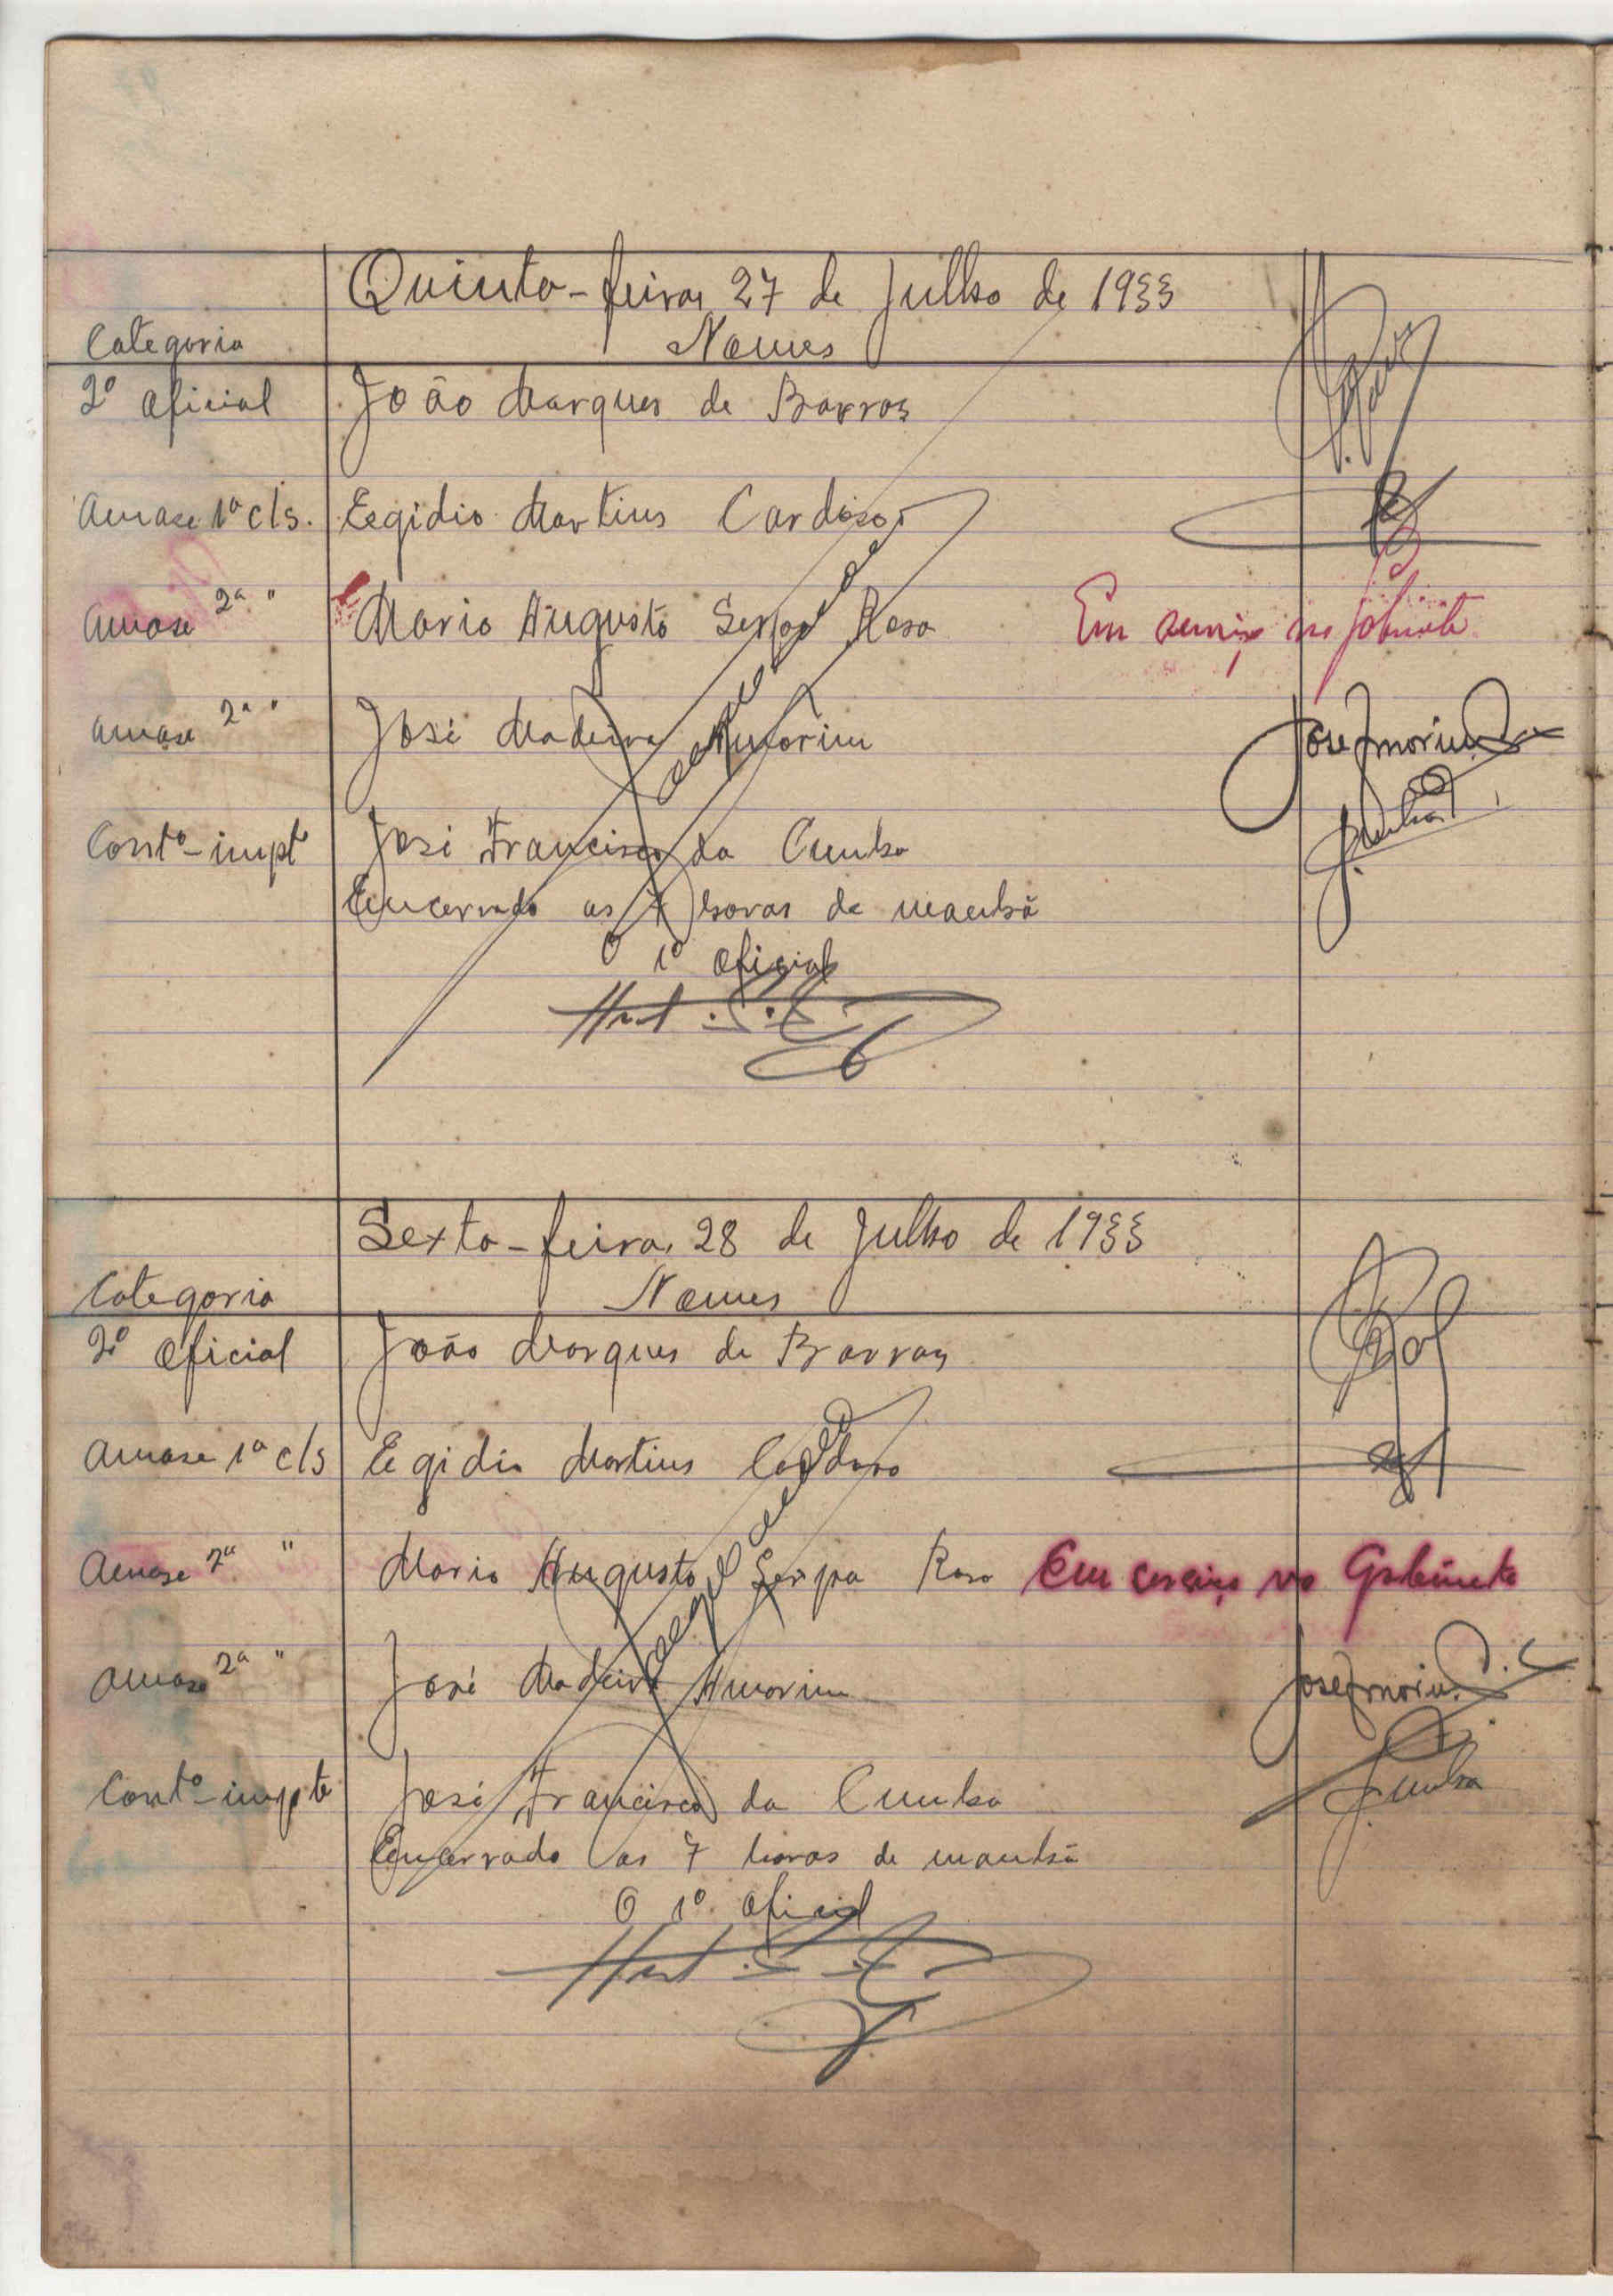 Quinta-feira, 27 de Julho de 1933
Categoria Nomes
2º Oficial João Marques de Barros
Amase 1ª cls. Egidio Martins Cardoso
Amase 2ª " Mario Augusto Serpa Rosa Em serviço no gabinete
Amase 2ª " José Madeira Amorim José Amorim
Contº-impte José Francisco da Cunha J. Cunha
Encerrado as 7 horas da manhã
O 1º Oficial
Sexta-feira, 28 de Julho de 1933
Categoria Nomes
2º Oficial João Marques de Barros
Amase 1ª cls Egidio Martins Cardoso
Amase 2ª " Mario Augusto Serpa Rosa Em serviço no Gabinete
Amase 2ª " José Madeira Amorim José Amorim
Contº-impte José Francisco da Cunha J. Cunha
Encerrado as 7 horas da manhã
O 1º Oficial